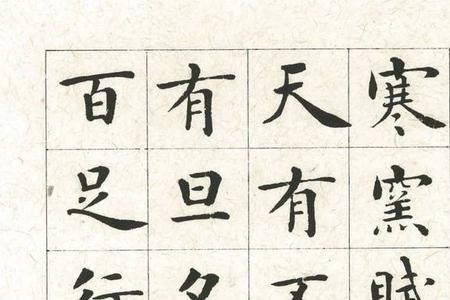 寒窯賦
天有不
有旦夕
百足行